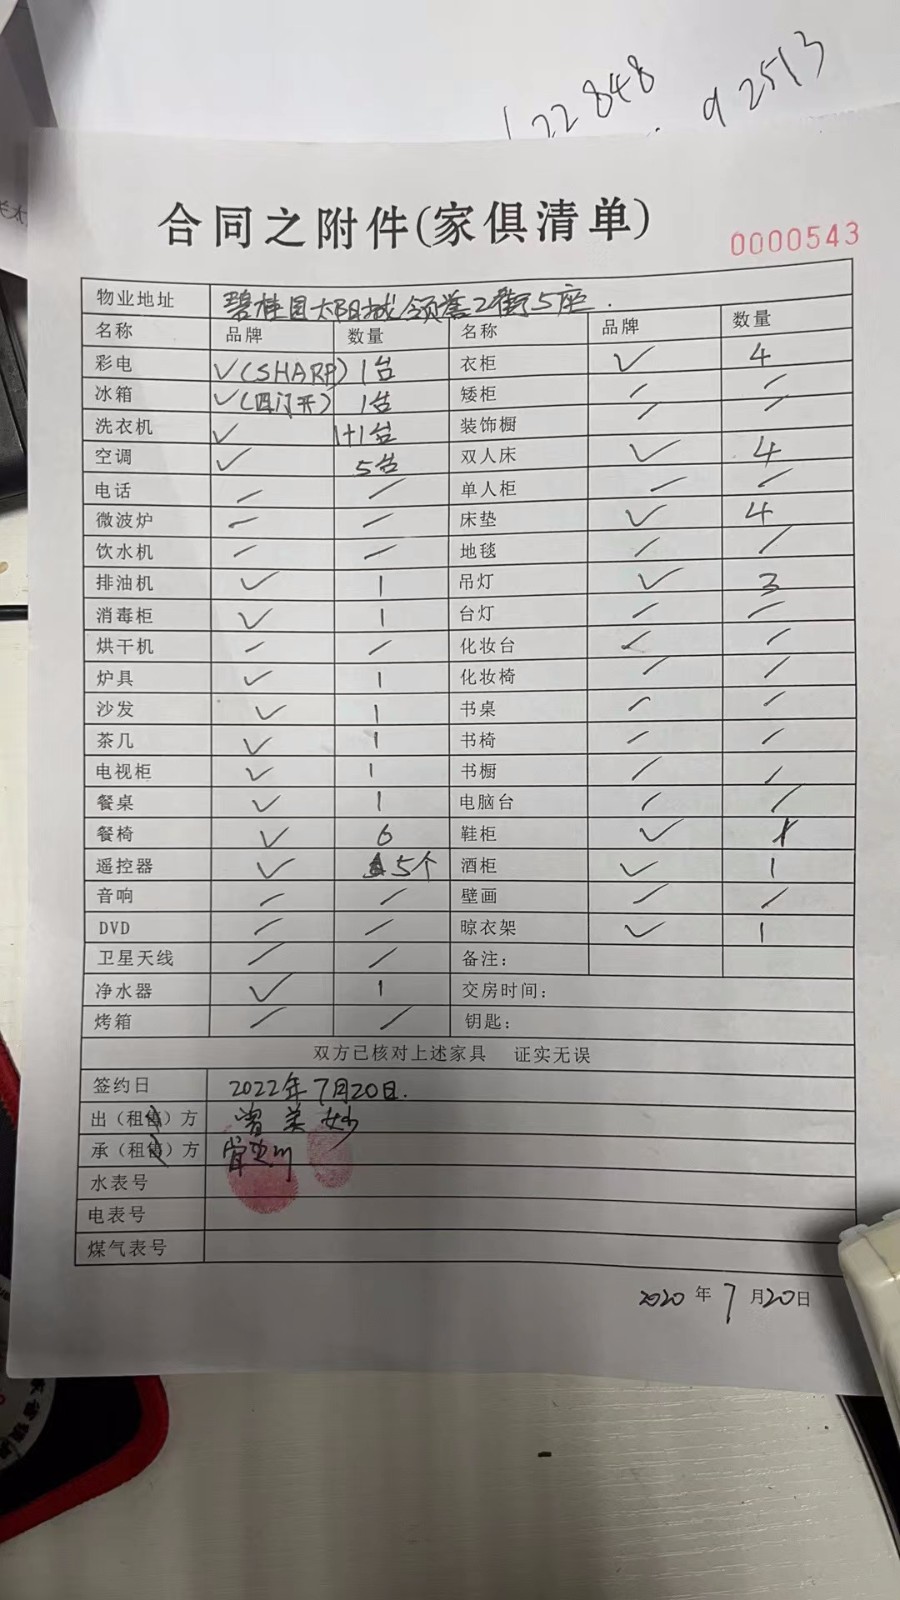 22848
92513
合同之附件(家俱清单)
0000543
物业地址 碧桂园太阳城领誉2街5座.
名称 品牌 数量 名称 品牌 数量
彩电 ✓(SHARP) 1台 衣柜 ✓ 4
冰箱 ✓(四门开) 1台 矮柜 / /
洗衣机 ✓ 1+1台 装饰橱 / /
空调 ✓ 5台 双人床 ✓ 4
电话 / / 单人柜 / /
微波炉 / / 床垫 ✓ 4
饮水机 / / 地毯 / /
排油机 ✓ 1 吊灯 ✓ 3
消毒柜 ✓ 1 台灯 / /
烘干机 / / 化妆台 / /
炉具 ✓ 1 化妆椅 / /
沙发 ✓ 1 书桌 / /
茶几 ✓ 1 书椅 / /
电视柜 ✓ 1 书橱 / /
餐桌 ✓ 1 电脑台 / /
餐椅 ✓ 6 鞋柜 ✓ 1
遥控器 ✓ 5个 酒柜 ✓ 1
音响 / / 壁画 / /
DVD / / 晾衣架 ✓ 1
卫星天线 / / 备注：
净水器 ✓ 1 交房时间：
烤箱 / / 钥匙：
双方已核对上述家具 证实无误
签约日 2022年7月20日.
出（租售）方 曾美妙
承（租售）方
水表号
电表号
煤气表号
2020年7月20日